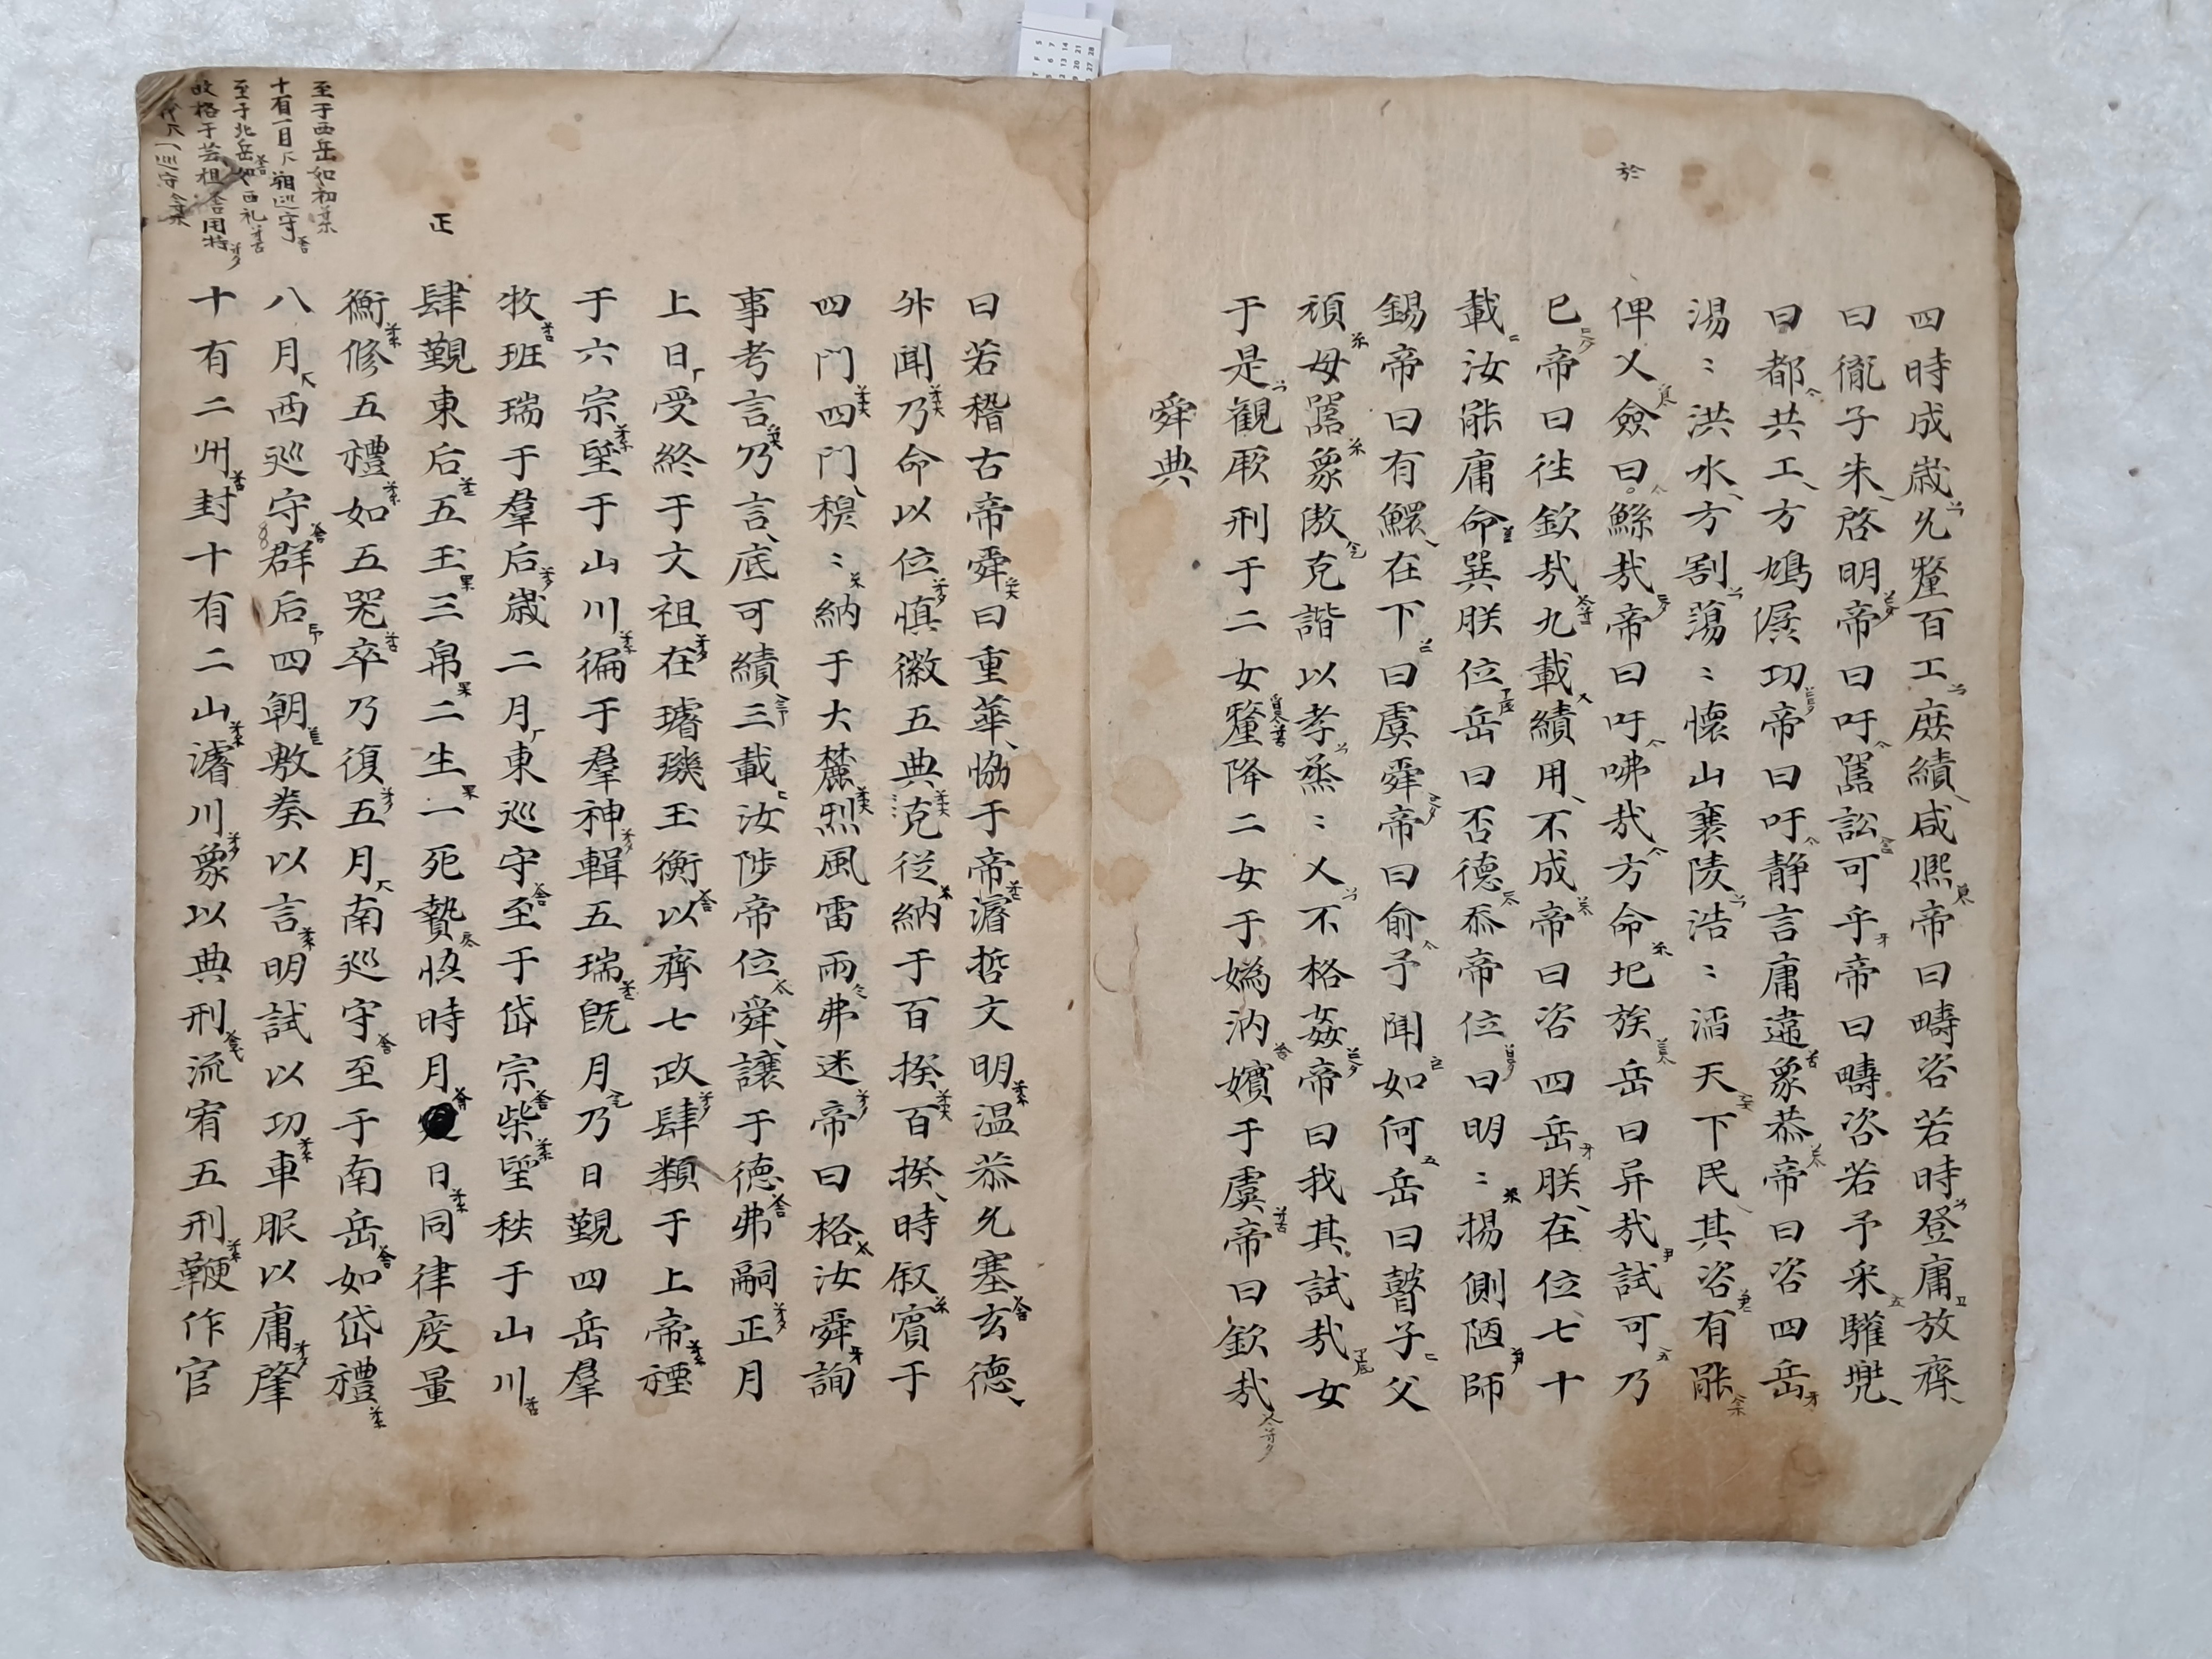 四時成嵗允釐百工庶績咸熈帝曰疇咨若時登庸放齊
曰胤子朱啓明帝曰吁嚚訟可乎帝曰疇咨若予采驩兠
曰都共工方鳩僝功帝曰吁靜言庸違象恭帝曰咨四岳
湯〻洪水方割蕩〻懷山襄陵浩〻滔天下民其咨有能
俾乂僉曰鯀㢤帝曰吁咈㢤方命圮族岳曰异㢤試可乃
已帝曰徃欽㢤九載績用不成帝曰咨四岳朕在位七十
載汝能庸命巽朕位岳曰否德忝帝位曰明〻揚側陋師
錫帝曰有鰥在下曰虞舜帝曰俞予聞如何岳曰瞽子父
頑母嚚象傲克諧以孝烝〻乂不格姦帝曰我其試㢤女
于是觀厥刑于二女釐降二女于嬀汭嬪于虞帝曰欽㢤
舜典
於
曰若稽古帝舜曰重華協于帝濬哲文明温恭允塞玄德
升聞乃命以位慎徽五典克從納于百揆百揆時叙賓于
四門四門穆〻納于大麓烈風雷雨弗迷帝曰格汝舜詢
事考言乃言底可績三載汝陟帝位舜讓于德弗嗣正月
上日受終于文祖在璿璣玉衡以齊七政肆類于上帝禋
于六宗望于山川徧于羣神輯五瑞旣月乃日覲四岳羣
牧班瑞于羣后嵗二月東巡守至于岱宗柴望秩于山川
肆覲東后五玉三帛二生一死贄協時月日同律度量
正
衡修五禮如五器卒乃復五月南巡守至于南岳如岱禮
八月西巡守群后四朝敷奏以言明試以功車服以庸肇
十有二州封十有二山濬川象以典刑流宥五刑鞭作官
至于西岳如初
十有一月朔巡守
至于北岳如西礼
故格于芸祖用特